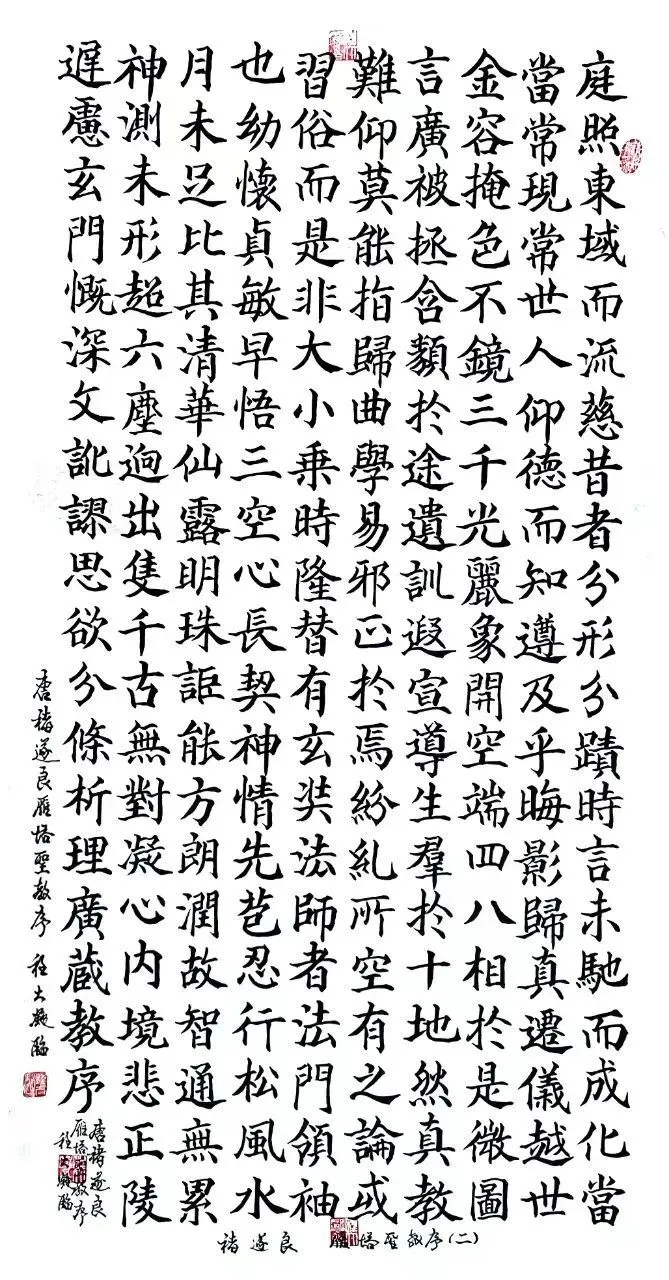 庭照東域而流慈昔者分形分蹟時言未馳而成化當
當常現常世人仰德而知遵及乎晦影歸真遷儀越世
金容掩色不鏡三千光麗象開空端四八相於是微圖
言廣被拯含類於途遺訓遐宣導生羣於十地然真教
難仰莫能指歸曲學易邪正於焉紛糺所空有之論或
習俗而是非大小乘時隆替有玄奘法師者法門領袖
也幼懷貞敏早悟三空心長契神情先苞忍行松風水
月未足比其清華仙露明珠詎能方朗潤故智通無累
神測未形超六塵迥出隻千古無對凝心內境悲正陵
遲慮玄門慨深文訛謬思欲分條析理廣蔵教序
唐褚遂良雁塔聖教序 程大臨
唐褚遂良
雁塔教序
程臨
褚遂良 塔聖教序(二)